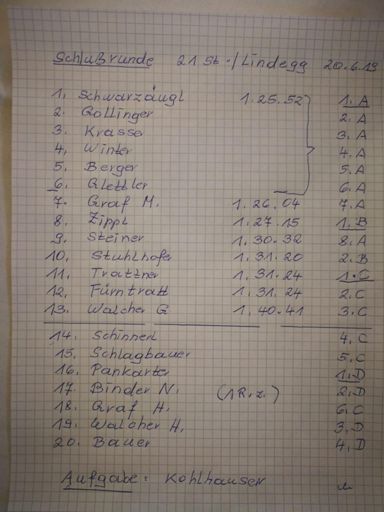 Schlußrunde 21 St. / Lindegg 20.6.19
1. Schwarzäugl 1.25.52 1. A
2. Gollinger 2. A
3. Krasser 3. A
4. Winter 4. A
5. Berger 5. A
6. Glettler 6. A
7. Graf M. 1.26.04 7. A
8. Zippl 1.27.15 1. B
9. Steiner 1.30.32 8. A
10. Stuhlhofer 1.31.20 2. B
11. Trattner 1.31.24 1. C
12. Fürntratt 1.31.24 2. C
13. Walcher G 1.40.41 3. C
14. Schinnerl 4. C
15. Schlagbauer 5. C
16. Pankarter 1. D
17. Binder N. (1 R.z.) 2. D
18. Graf H. 6. C
19. Walcher H. 3. D
20. Bauer 4. D
Aufgabe: Kohlhauser